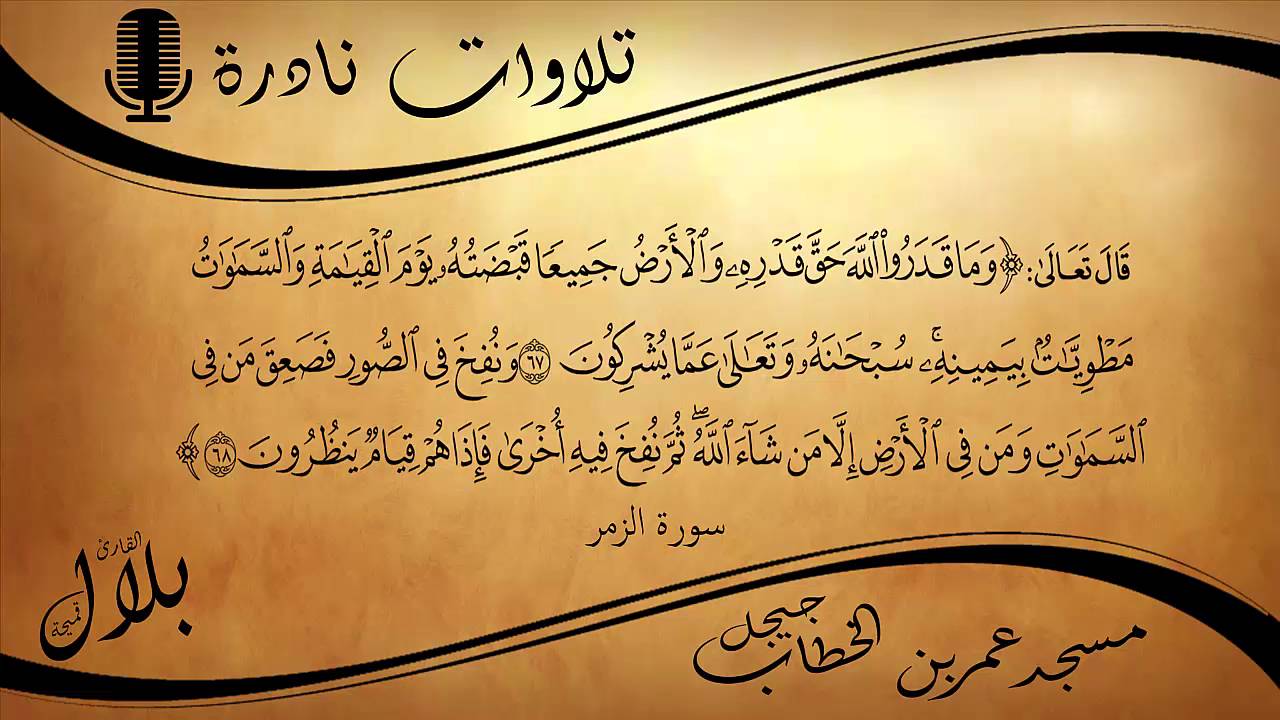 تلاوات نادرة
قَالَ تَعَالَىٰ: ﴿وَمَا قَدَرُوا۟ ٱللَّهَ حَقَّ قَدْرِهِۦ وَٱلْأَرْضُ جَمِيعًا قَبْضَتُهُۥ يَوْمَ ٱلْقِيَٰمَةِ وَٱلسَّمَٰوَٰتُ
مَطْوِيَّٰتٌۢ بِيَمِينِهِۦ ۚ سُبْحَٰنَهُۥ وَتَعَٰلَىٰ عَمَّا يُشْرِكُونَ ٦٧ وَنُفِخَ فِى ٱلصُّورِ فَصَعِقَ مَن فِى
ٱلسَّمَٰوَٰتِ وَمَن فِى ٱلْأَرْضِ إِلَّا مَن شَآءَ ٱللَّهُ ۖ ثُمَّ نُفِخَ فِيهِ أُخْرَىٰ فَإِذَا هُمْ قِيَامٌ يَنظُرُونَ ٦٨﴾
سورة الزمر
القارئ
بلال
قميحة
مسجد عمر بن الخطاب
جيجل